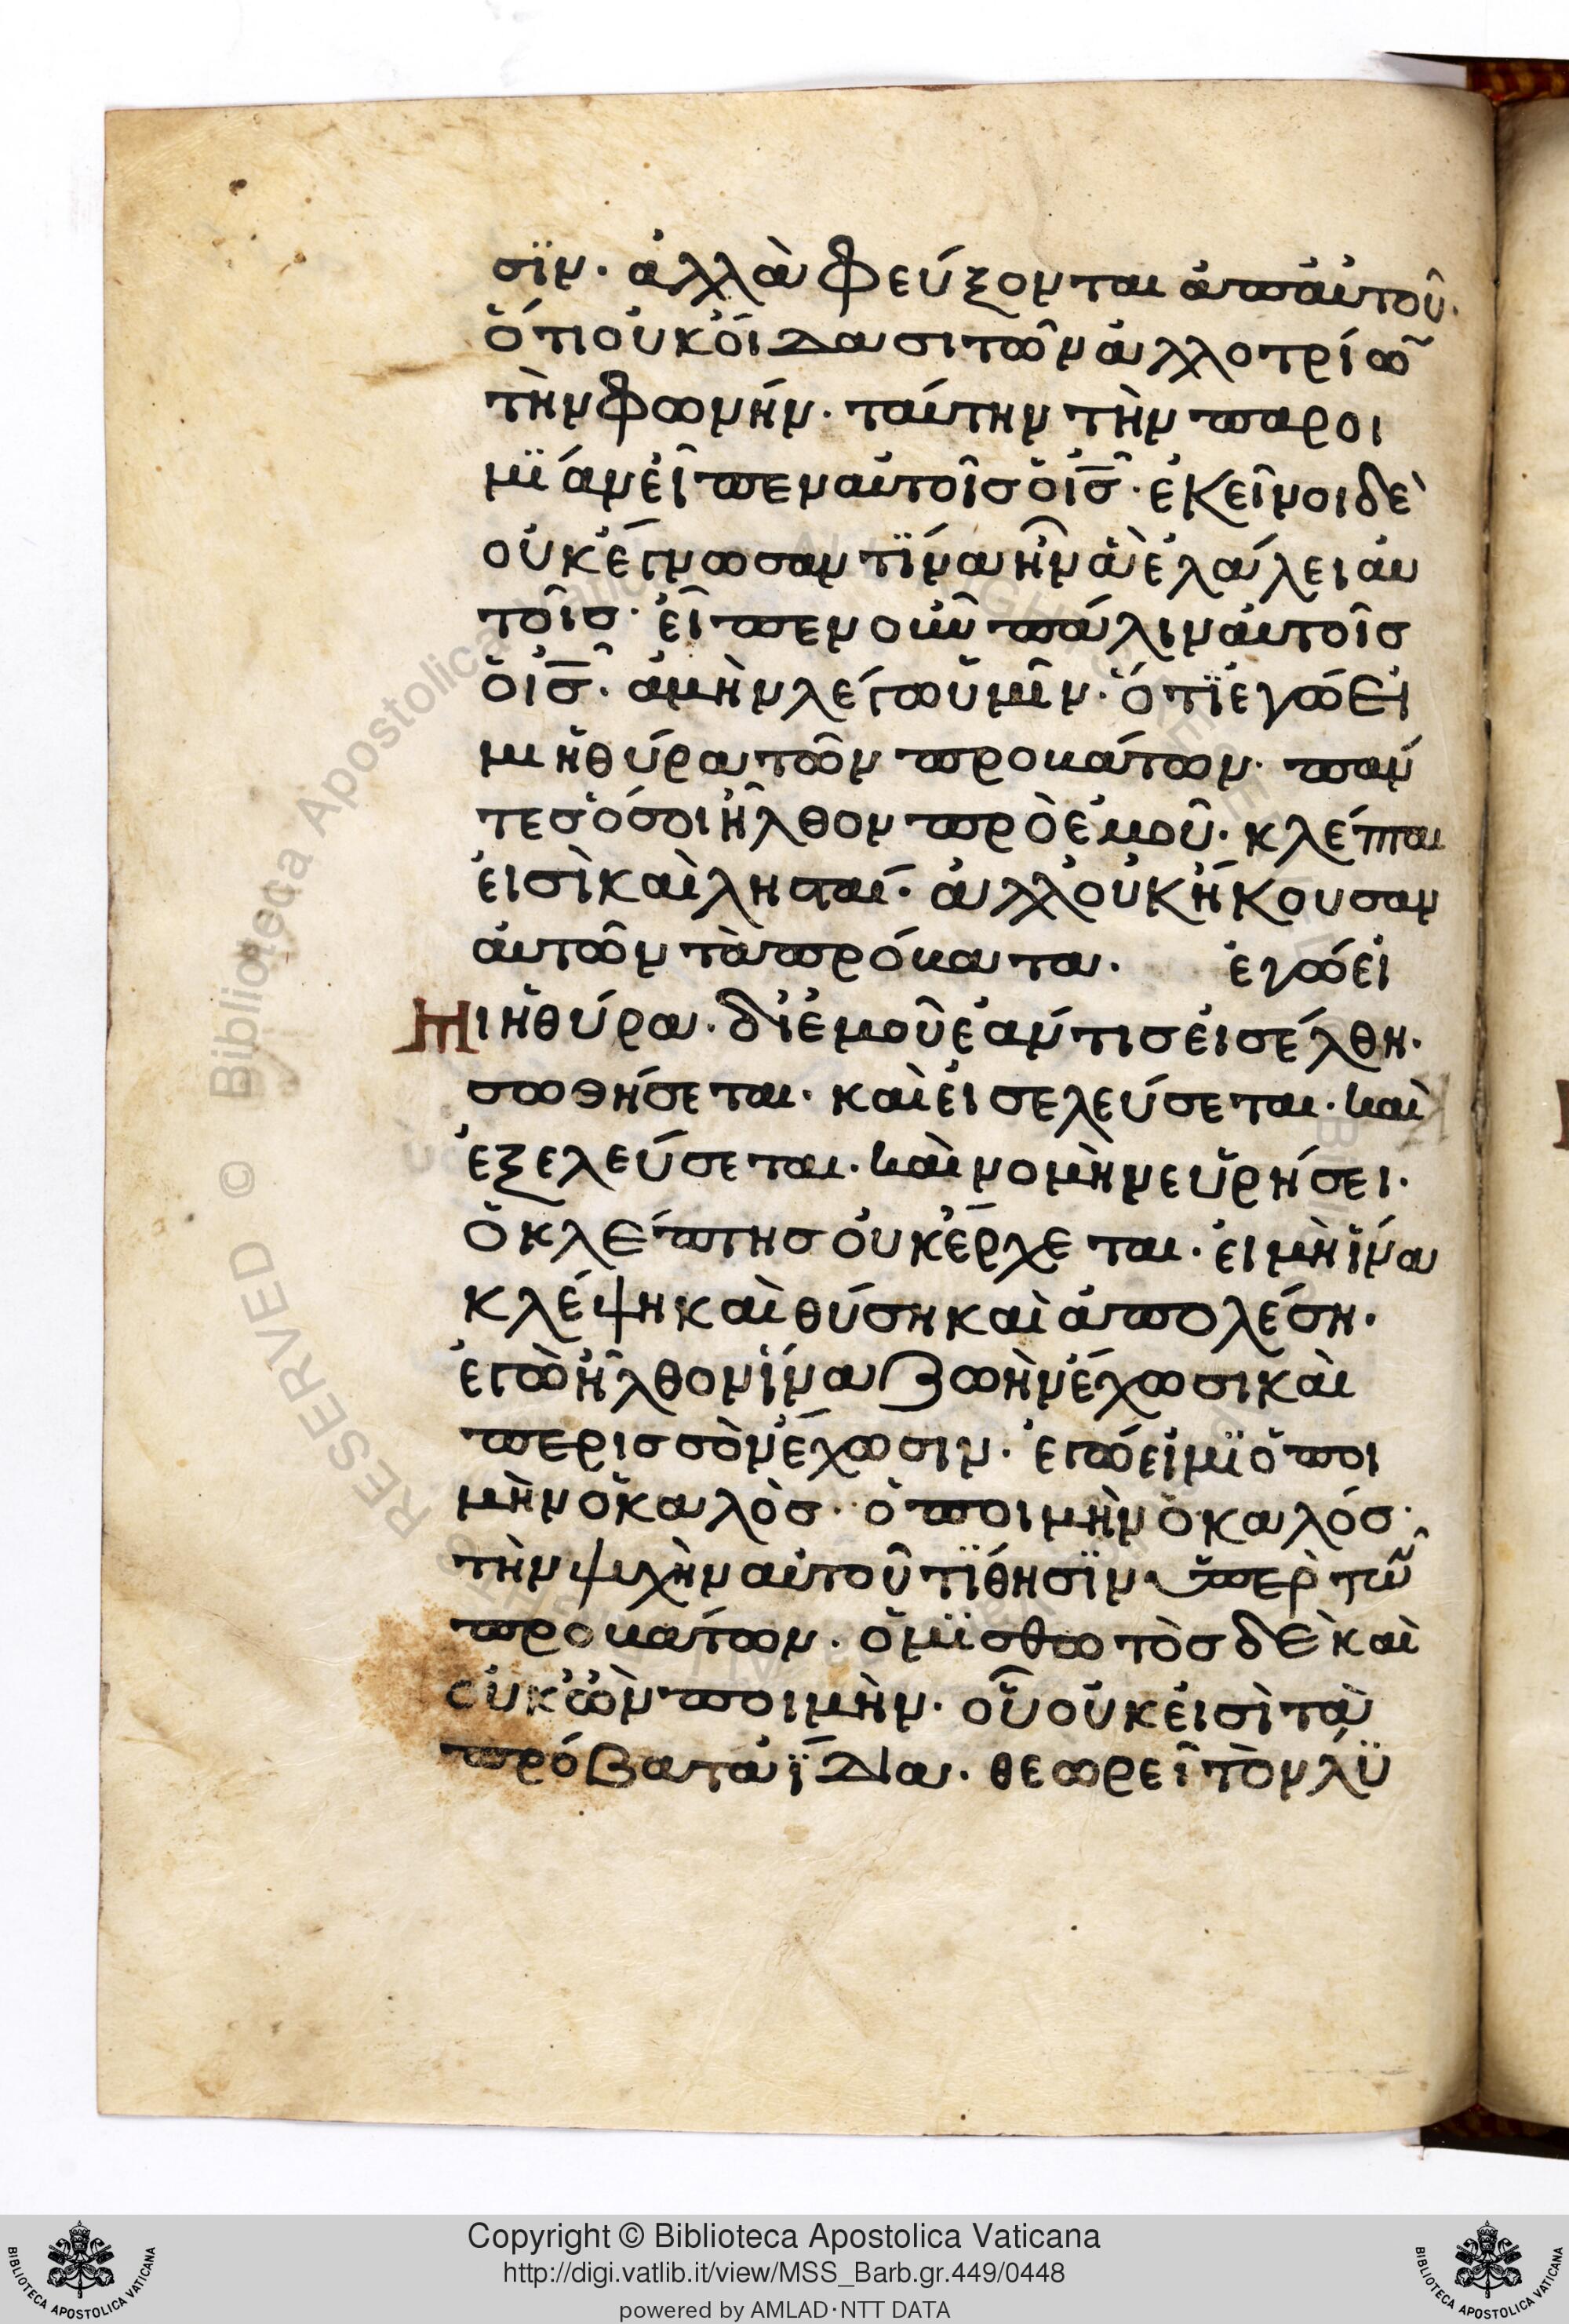 σϊν· ἀλλὰ φεύξονται ἀπ' αὐτοῦ·
ὅτι οὐκ οἴδασι τῶν ἀλλοτρίω̃
τὴν φωνήν· ταύτην τὴν παροι
μΐαν εἶπεν αὐτοῖς ὁ ι̅ς̅· ἐκεῖνοι δὲ
οὐκ ἔγνωσαν τΐνα ἦν ἃ ἐλάλει αὐ
τοῖς· εἶπεν οὖν πάλιν αὐτοῖς
ὁ ι̅ς̅· ἀμὴν λέγω ὑμῖν· ὅτϊ ἐγώ εἰ
μι ἡ θύρα τῶν προβάτων· πάν
τες ὅσοι ἦλθον πρὸ ἐμοῦ· κλέπται
εἰσὶ καὶ λησταί· ἀλλ' οὐκ ἤκουσαν
αὐτῶν τὰ πρόβατα· ἐγώ εἰ
μι ἡ θύρα· δι' ἐμοῦ ἐάν τις εἰσέλθη·
σωθήσεται· καὶ εἰσελεύσεται· καὶ
ἐξελεύσεται· καὶ νομὴν εὑρήσει·
ὁ κλέπτης οὐκ ἔρχεται· εἰ μὴ ἵνα
κλέψη καὶ θύση καὶ ἀπολέση·
ἐγὼ ἦλθον ἵνα ζωὴν ἔχωσι καὶ
περισσὸν ἔχωσιν· ἐγώ εἰμϊ ὁ ποι
μὴν ὁ καλὸς· ὁ ποιμὴν ὁ καλός·
τὴν ψυχὴν αὐτοῦ τΐθησϊν ὑπὲρ τῶ̃
προβάτων· ὁ μϊσθωτὸς δὲ καὶ
οὐκ ὢν ποιμὴν· οὗ οὐκ εἰσὶ τὰ
πρόβατα ἴδια· θεωρεῖ τὸν λύ
Copyright © Biblioteca Apostolica Vaticana
http://digi.vatlib.it/view/MSS_Barb.gr.449/0448
powered by AMLAD·NTT DATA
BIBLIOTECA APOSTOLICA VATICANA
BIBLIOTECA APOSTOLICA VATICANA